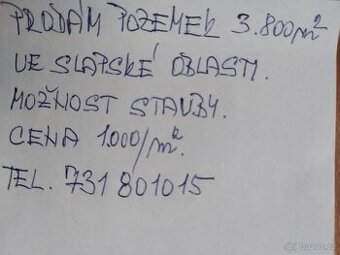 PRODÁM POZEMEK 3.800m²
VE SLAPSKÉ OBLASTI.
MOŽNOST STAVBY.
CENA 1.000/m².
TEL. 731 801015